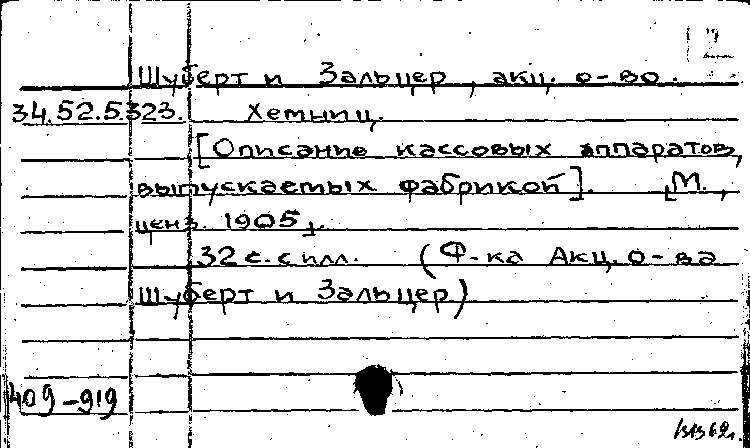 12
Шуберт и Зальцер, акц. о-во.
34.52.5.323. Хемниц.
[Описание кассовых аппаратов,
выпускаемых фабрикой]. [М.,
ценз. 1905].
32 с. с илл. (Ф-ка Акц. о-ва
Шуберт и Зальцер)
409-919